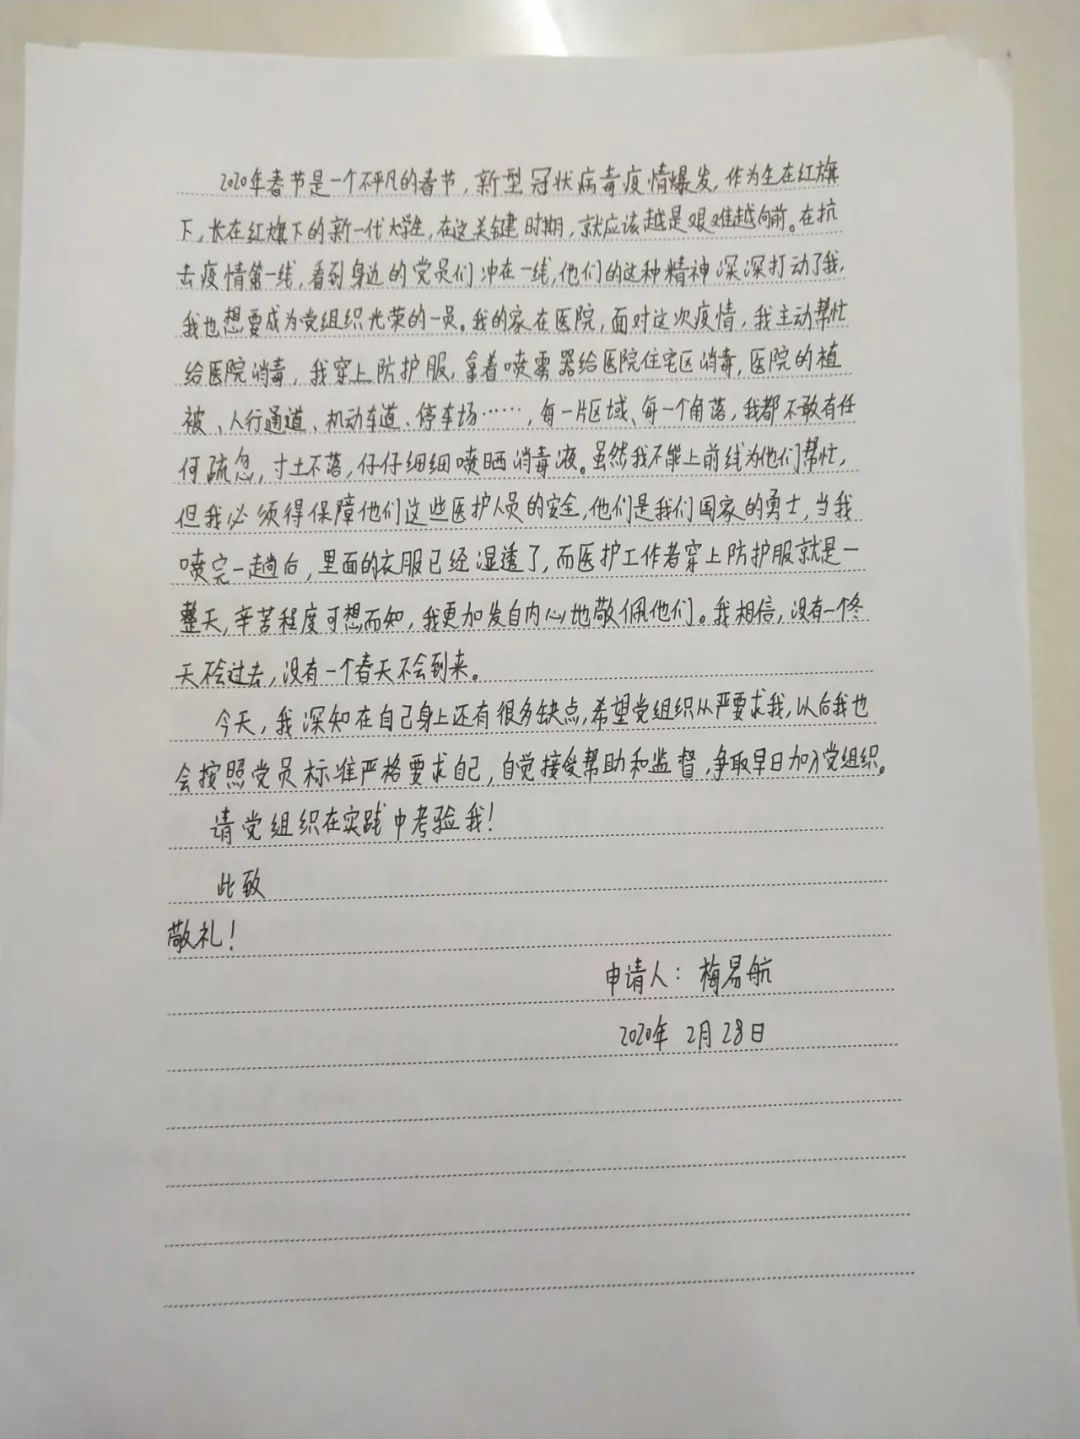 2020年春节是一个不平凡的春节,新型冠状病毒疫情爆发,作为生在红旗
下,长在红旗下的新一代大学生,在这关键时期,就应该越是艰难越向前。在抗
击疫情第一线,看到身边的党员们冲在一线,他们的这种精神深深打动了我,
我也想要成为党组织光荣的一员。我的家在医院,面对这次疫情,我主动帮忙
给医院消毒,我穿上防护服,拿着喷雾器给医院住宅区消毒,医院的植
被、人行通道、机动车道、停车场……,每一片区域、每一个角落,我都不敢有任
何疏忽,寸土不落,仔仔细细喷晒消毒液。虽然我不能上前线为他们帮忙,
但我必须得保障他们这些医护人员的安全,他们是我们国家的勇士,当我
喷完一趟后,里面的衣服已经湿透了,而医护工作者穿上防护服就是一
整天,辛苦程度可想而知,我更加发自内心地敬佩他们。我相信,没有一个冬
天不会过去,没有一个春天不会到来。
今天,我深知在自己身上还有很多缺点,希望党组织从严要求我,以后我也
会按照党员标准严格要求自己,自觉接受帮助和监督,争取早日加入党组织。
请党组织在实践中考验我!
此致
敬礼!
申请人:梅易航
2020年2月28日